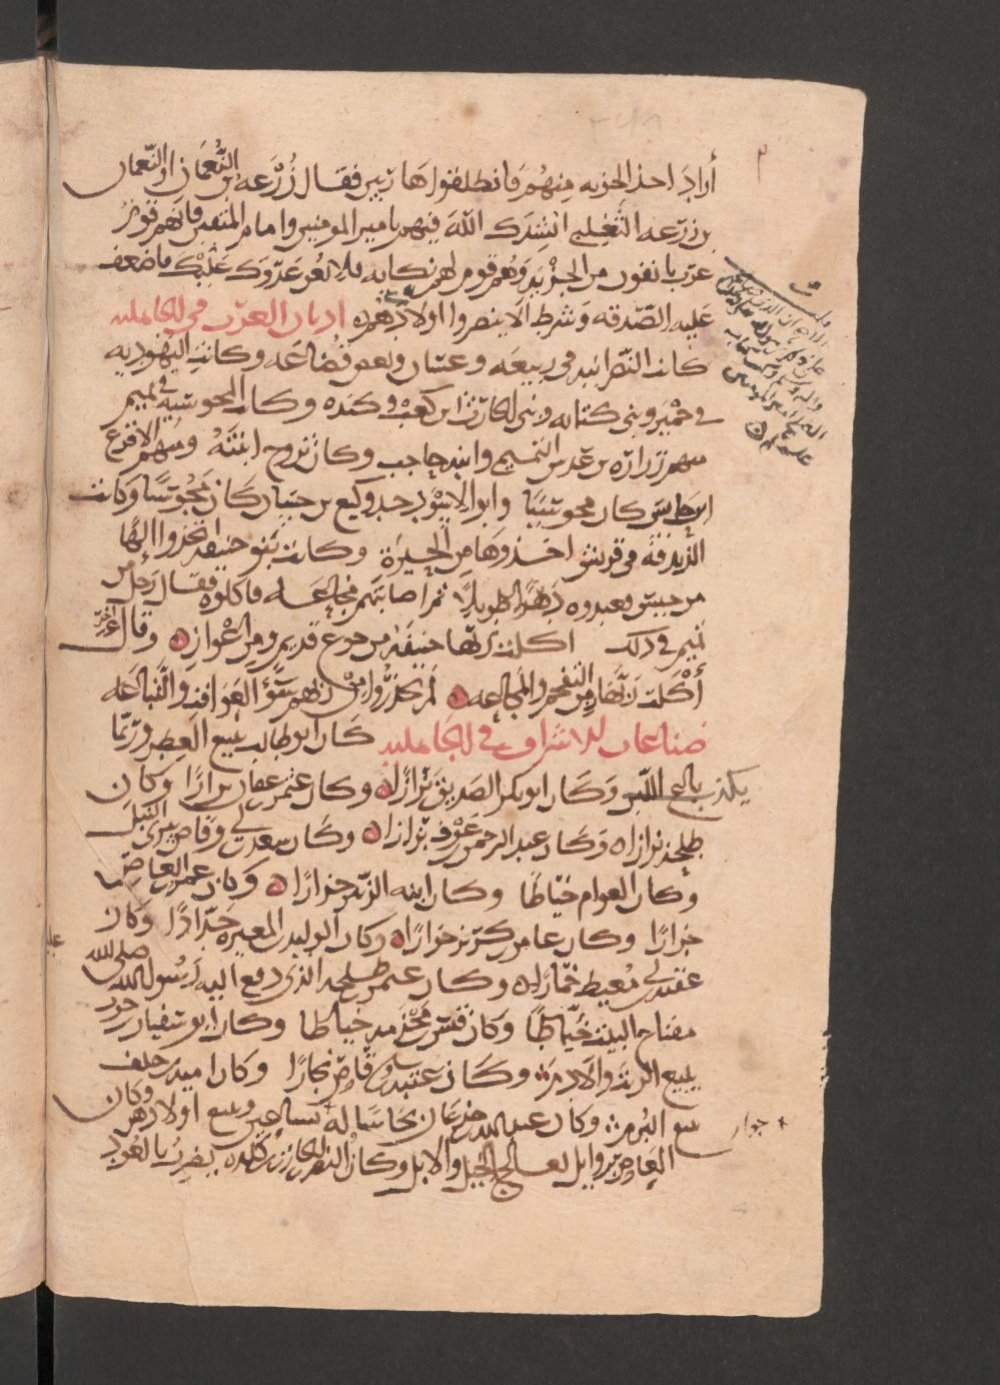 أراد اخذ الجزيه منهم فانطلقوا هاربين فقال زُرعه بن النُّعمَان او النّعمان
بن زرعه التَّغلبي انشدك اللهَ فيهم يامير المومنين فانهم قوم
عرب يانفون من الجزيه وهم قوم لهم نكايه فلا تعن عدوك عليك فاضعف
عليهم الصّدقه وشرط الا ينصروا اولادهم ادیان العرب في الجاهلیه
كانت النّصرانيه في ربيعه وغسّان وبعض قُضاعَه وكانت اليهوديه
في حِمْيَر وبني كنانه وبني الحارث ابن كعب وكنده وكان المجوسيه في تميم
منهم زراره بن عدس التميمي وابنه حاجب وكان تزوج ابنتَهُ ومنهم الاقرع
ابن حابس كان مجوسيًا وابو الاسود جد وكيع بن حسان كان مجوسيا وكانت
الزندقة في قريش اخذوها من الحِيرَة وكانت بنو حنيفه اتخذوا الهًا
من حيس فعبدوه دَهرًا طويلًا ثم اصابتهم مجاعه فاكلوه فقال رجل من
تميم في ذلك اكلت ربّها حنيفه من جوع قديم ومن اعواز وقال آخر
أكلت ربّها زمن التقحم والمجاعه لم يحذروا من ربّهم سُوء العواقب والتّباعَه
صناعات الاشراف في الجاهليه كان ابو طالب يبيع العطر وربّما
باع اللبن وكان ابو بكر الصديق بزازا وكان عثمن بن عفان بزازًا وكان
طلحه بزازا وكان عبد الرحمن بن عوف بزازا وكان سعد بن ابي وقاص يبري النّبل
وكان العوام خيّاطًا وكان ابنه الزّبير جزارًا وكان عمرو بن العاص
جزارًا وكان عامر بن كريز جزارًا وكان الوليد بن المغيره حدّادًا وكان
عقبه بن ابي مُعيط خمّارا وكان عثمن بن طلحه الذي دفع اليه رسول الله صلى الله
مفتاح البيت خيّاطًا وكان قيس بن مخرمه خياطا وكان ابو سفيان بن حرب
يبيع الزيت والادم وكان عتبه بن ابي وقاص نجارًا وكان اميه بن خلف
يبيع البُرم وكان عبد الله بن جدعان نخاسا له جوار يساعين ويبيع اولادهن وكان
العاص بن وايل يعالج الخيل والابل وكان النضر بن الحارث بن كلده يضرب بالعود